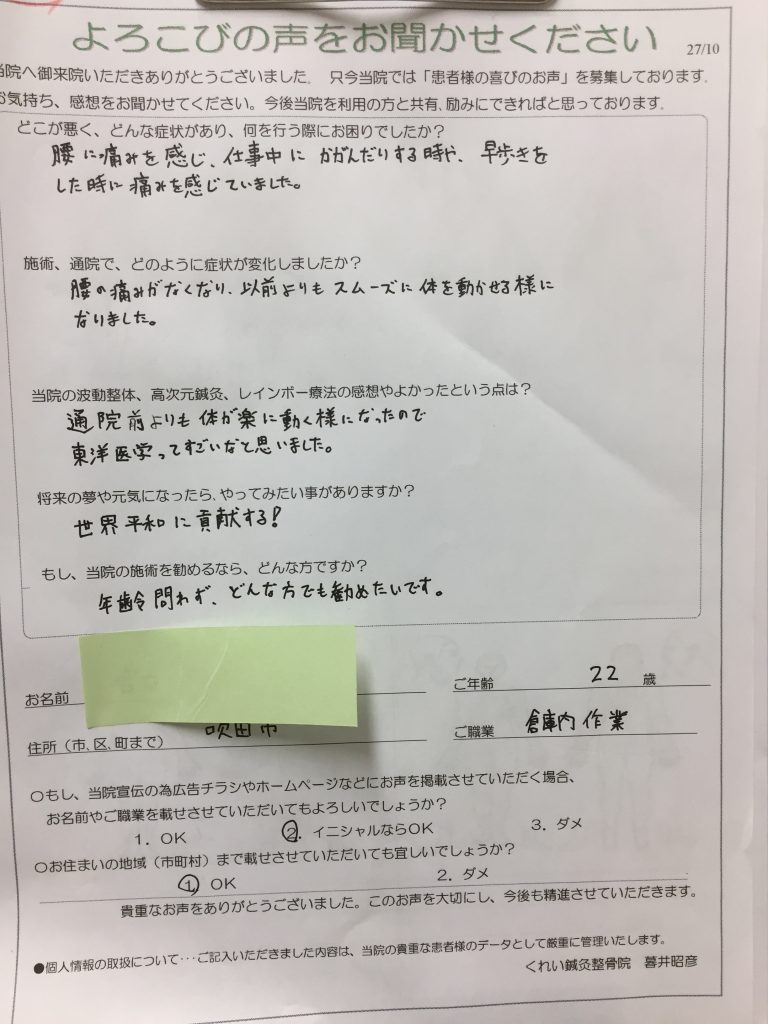 よろこびの声をお聞かせください
27/10
当院へ御来院いただきありがとうございました。 只今当院では「患者様の喜びのお声」を募集しております。
お気持ち、感想をお聞かせてください。今後当院を利用の方と共有、励みにできればと思っております。
どこが悪く、どんな症状があり、何を行う際にお困りでしたか？
腰に痛みを感じ、仕事中にかがんだりする時や、早歩きを
した時に痛みを感じていました。
施術、通院で、どのように症状が変化しましたか？
腰の痛みがなくなり、以前よりもスムーズに体を動かせる様に
なりました。
当院の波動整体、高次元鍼灸、レインボー療法の感想やよかったという点は？
通院前よりも体が楽に動く様になったので
東洋医学ってすごいなと思いました。
将来の夢や元気になったら、やってみたい事がありますか？
世界平和に貢献する！
もし、当院の施術を勧めるなら、どんな方ですか？
年齢問わず、どんな方でも勧めたいです。
お名前
ご年齢 22 歳
住所（市、区、町まで） 吹田市
ご職業 倉庫内作業
○もし、当院宣伝の為広告チラシやホームページなどにお声を掲載させていただく場合、
お名前やご職業を載せさせていただいてもよろしいでしょうか？
1．OK ②．イニシャルならOK 3．ダメ
○お住まいの地域（市町村）まで載せさせていただいても宜しいでしょうか？
① OK 2．ダメ
貴重なお声をありがとうございました。このお声を大切にし、今後も精進させていただきます。
●個人情報の取扱について･･･ご記入いただきました内容は、当院の貴重な患者様のデータとして厳重に管理いたします。
くれい鍼灸整骨院 暮井昭彦